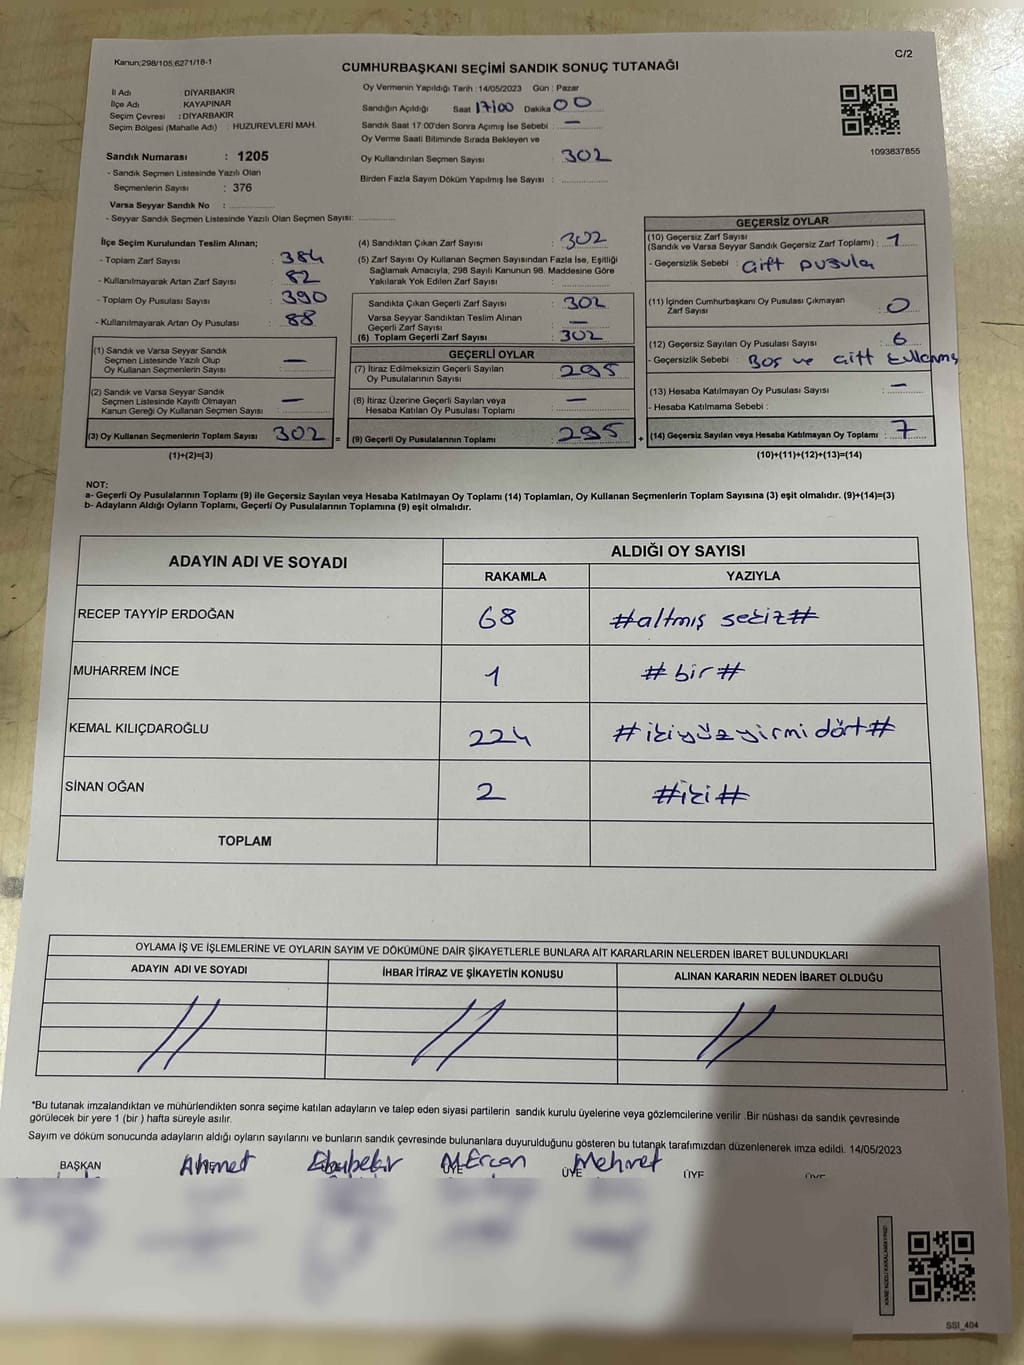 Kanun;298/105;6271/18-1
C/2
CUMHURBAŞKANI SEÇİMİ SANDIK SONUÇ TUTANAĞI
İl Adı : DİYARBAKIR
İlçe Adı : KAYAPINAR
Seçim Çevresi : DİYARBAKIR
Seçim Bölgesi (Mahalle Adı) : HUZUREVLERİ MAH.
Oy Vermenin Yapıldığı Tarih : 14/05/2023 Gün : Pazar
Sandığın Açıldığı Saat 17:00 Dakika 00
Sandık Saat 17:00'den Sonra Açımış İse Sebebi : —
Oy Verme Saati Bitiminde Sırada Bekleyen ve
Oy Kullandırılan Seçmen Sayısı 302
Birden Fazla Sayım Döküm Yapılmış İse Sayısı :
1093837855
Sandık Numarası : 1205
- Sandık Seçmen Listesinde Yazılı Olan
Seçmenlerin Sayısı : 376
Varsa Seyyar Sandık No :
- Seyyar Sandık Seçmen Listesinde Yazılı Olan Seçmen Sayısı:
İlçe Seçim Kurulundan Teslim Alınan;
- Toplam Zarf Sayısı : 384
- Kullanılmayarak Artan Zarf Sayısı : 82
- Toplam Oy Pusulası Sayısı : 390
- Kullanılmayarak Artan Oy Pusulası : 88
(1) Sandık ve Varsa Seyyar Sandık
Seçmen Listesinde Yazılı Olup
Oy Kullanan Seçmenlerin Sayısı : —
(2) Sandık ve Varsa Seyyar Sandık
Seçmen Listesinde Kayıtlı Olmayan
Kanun Gereği Oy Kullanan Seçmen Sayısı : —
(3) Oy Kullanan Seçmenlerin Toplam Sayısı 302 =
(1)+(2)=(3)
(4) Sandıktan Çıkan Zarf Sayısı : 302
(5) Zarf Sayısı Oy Kullanan Seçmen Sayısından Fazla İse, Eşitliği
Sağlamak Amacıyla, 298 Sayılı Kanunun 98. Maddesine Göre
Yakılarak Yok Edilen Zarf Sayısı :
Sandıkta Çıkan Geçerli Zarf Sayısı : 302
Varsa Seyyar Sandıktan Teslim Alınan
Geçerli Zarf Sayısı : —
(6) Toplam Geçerli Zarf Sayısı : 302
GEÇERLİ OYLAR
(7) İtiraz Edilmeksizin Geçerli Sayılan
Oy Pusulalarının Sayısı : 295
(8) İtiraz Üzerine Geçerli Sayılan veya
Hesaba Katılan Oy Pusulası Toplamı : —
(9) Geçerli Oy Pusulalarının Toplamı : 295 +
GEÇERSİZ OYLAR
(10) Geçersiz Zarf Sayısı
(Sandık ve Varsa Seyyar Sandık Geçersiz Zarf Toplamı) : 1
- Geçersizlik Sebebi : Çift pusula
(11) İçinden Cumhurbaşkanı Oy Pusulası Çıkmayan
Zarf Sayısı : 0
(12) Geçersiz Sayılan Oy Pusulası Sayısı : 6
- Geçersizlik Sebebi : Boş ve Çift kullanmış
(13) Hesaba Katılmayan Oy Pusulası Sayısı : —
- Hesaba Katılmama Sebebi :
(14) Geçersiz Sayılan veya Hesaba Katılmayan Oy Toplamı : 7
(10)+(11)+(12)+(13)=(14)
NOT:
a- Geçerli Oy Pusulalarının Toplamı (9) ile Geçersiz Sayılan veya Hesaba Katılmayan Oy Toplamı (14) Toplamları, Oy Kullanan Seçmenlerin Toplam Sayısına (3) eşit olmalıdır. (9)+(14)=(3)
b- Adayların Aldığı Oyların Toplamı, Geçerli Oy Pusulalarının Toplamına (9) eşit olmalıdır.
ADAYIN ADI VE SOYADI ALDIĞI OY SAYISI
RAKAMLA YAZIYLA
RECEP TAYYİP ERDOĞAN 68 #altmış sekiz#
MUHARREM İNCE 1 #bir#
KEMAL KILIÇDAROĞLU 224 #ikiyüzyirmi dört#
SİNAN OĞAN 2 #iki#
TOPLAM
OYLAMA İŞ VE İŞLEMLERİNE VE OYLARIN SAYIM VE DÖKÜMÜNE DAİR ŞİKAYETLERLE BUNLARA AİT KARARLARIN NELERDEN İBARET BULUNDUKLARI
ADAYIN ADI VE SOYADI İHBAR İTİRAZ VE ŞİKAYETİN KONUSU ALINAN KARARIN NEDEN İBARET OLDUĞU
// // //
*Bu tutanak imzalandıktan ve mühürlendikten sonra seçime katılan adayların ve talep eden siyasi partilerin sandık kurulu üyelerine veya gözlemcilerine verilir .Bir nüshası da sandık çevresinde
görülecek bir yere 1 (bir ) hafta süreyle asılır.
Sayım ve döküm sonucunda adayların aldığı oyların sayılarını ve bunların sandık çevresinde bulunanlara duyurulduğunu gösteren bu tutanak tarafımızdan düzenlenerek imza edildi. 14/05/2023
BAŞKAN Ahmet Ebubekir M.Ercan ÜYE Mehmet ÜYE ÜYE ÜYE
SSI_404